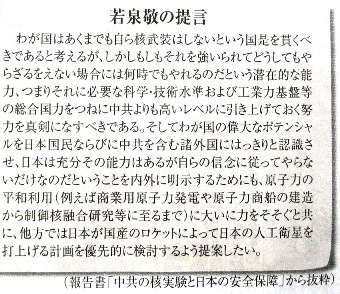 若泉敬の提言
わが国はあくまでも自ら核武装はしないという国是を貫くべ
きであると考えるが、しかしもしそれを強いられてどうしてもや
らざるをえない場合には何時でもやれるのだという潜在的な能
力、つまりそれに必要な科学・技術水準および工業力基盤等
の総合国力をつねに中共よりも高いレベルに引き上げておく努
力を真剣になすべきである。そしてわが国の偉大なポテンシャ
ルを日本国民ならびに中共を含む諸外国にはっきりと認識さ
せ、日本は充分その能力はあるが自らの信念に従ってやらな
いだけなのだということを内外に明示するためにも、原子力の
平和利用(例えば商業用原子力発電や原子力商船の建造
から制御核融合研究等に至るまで)に大いに力をそそぐと共
に、他方では日本が国産のロケットによって日本の人工衛星を
打上げる計画を優先的に検討するよう提案したい。
(報告書「中共の核実験と日本の安全保障」から抜粋)